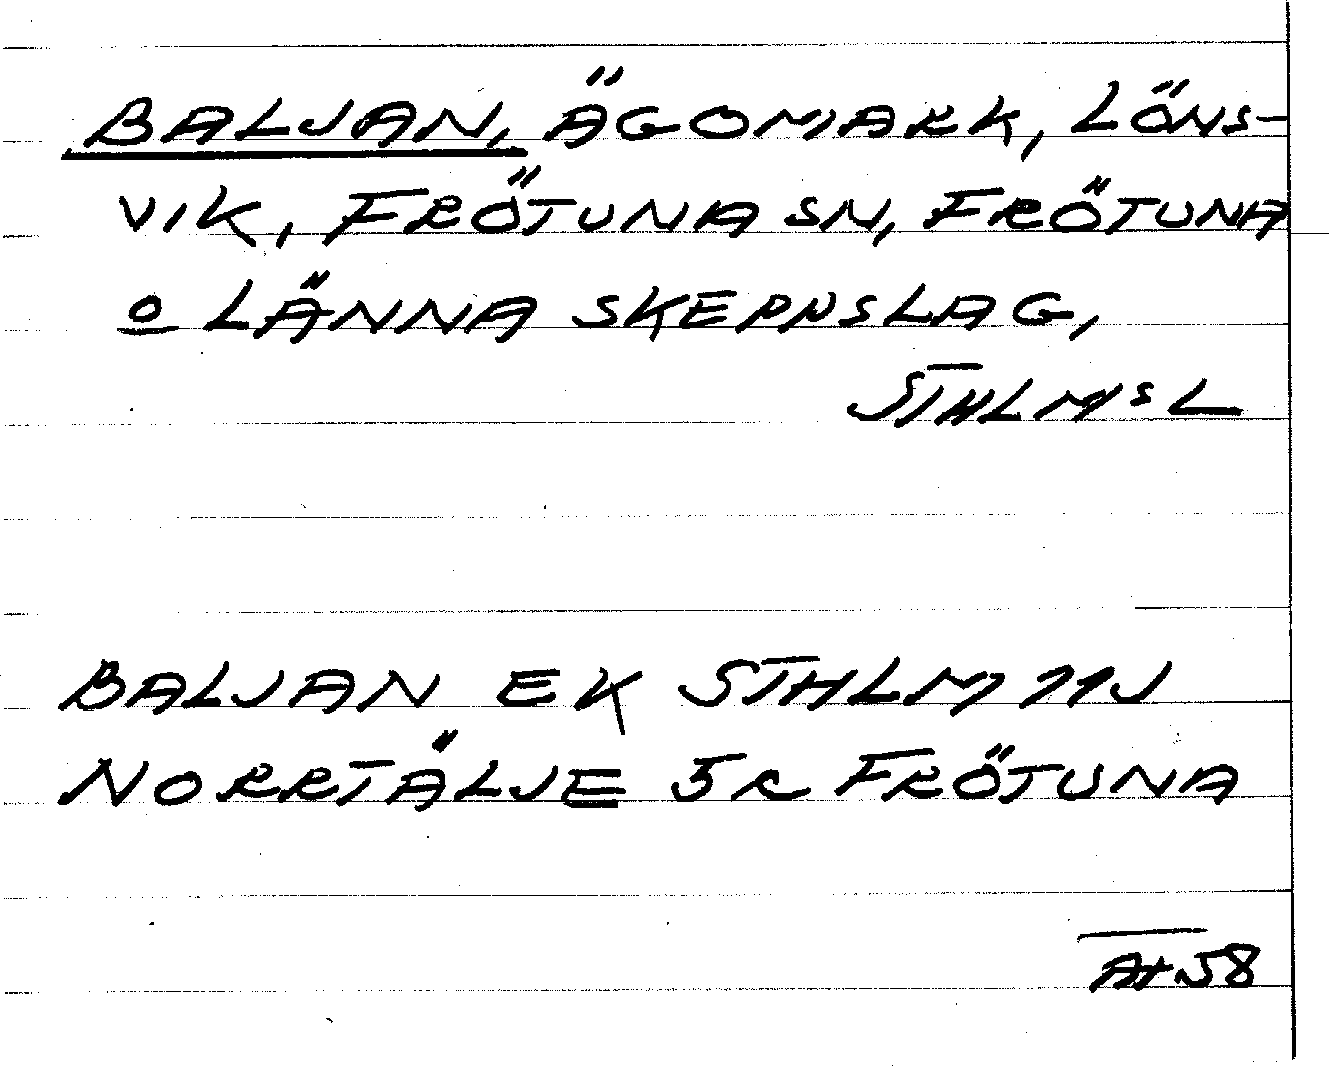 BALJAN, ÄGOMARK, LÖNS-
VIK, FRÖTUNA SN, FRÖTUNA
o LÄNNA SKEPPSLAG,
STHLMS L
BALJAN EK STHLM 11J
NORRTÄLJE 5c FRÖTUNA
AH 58